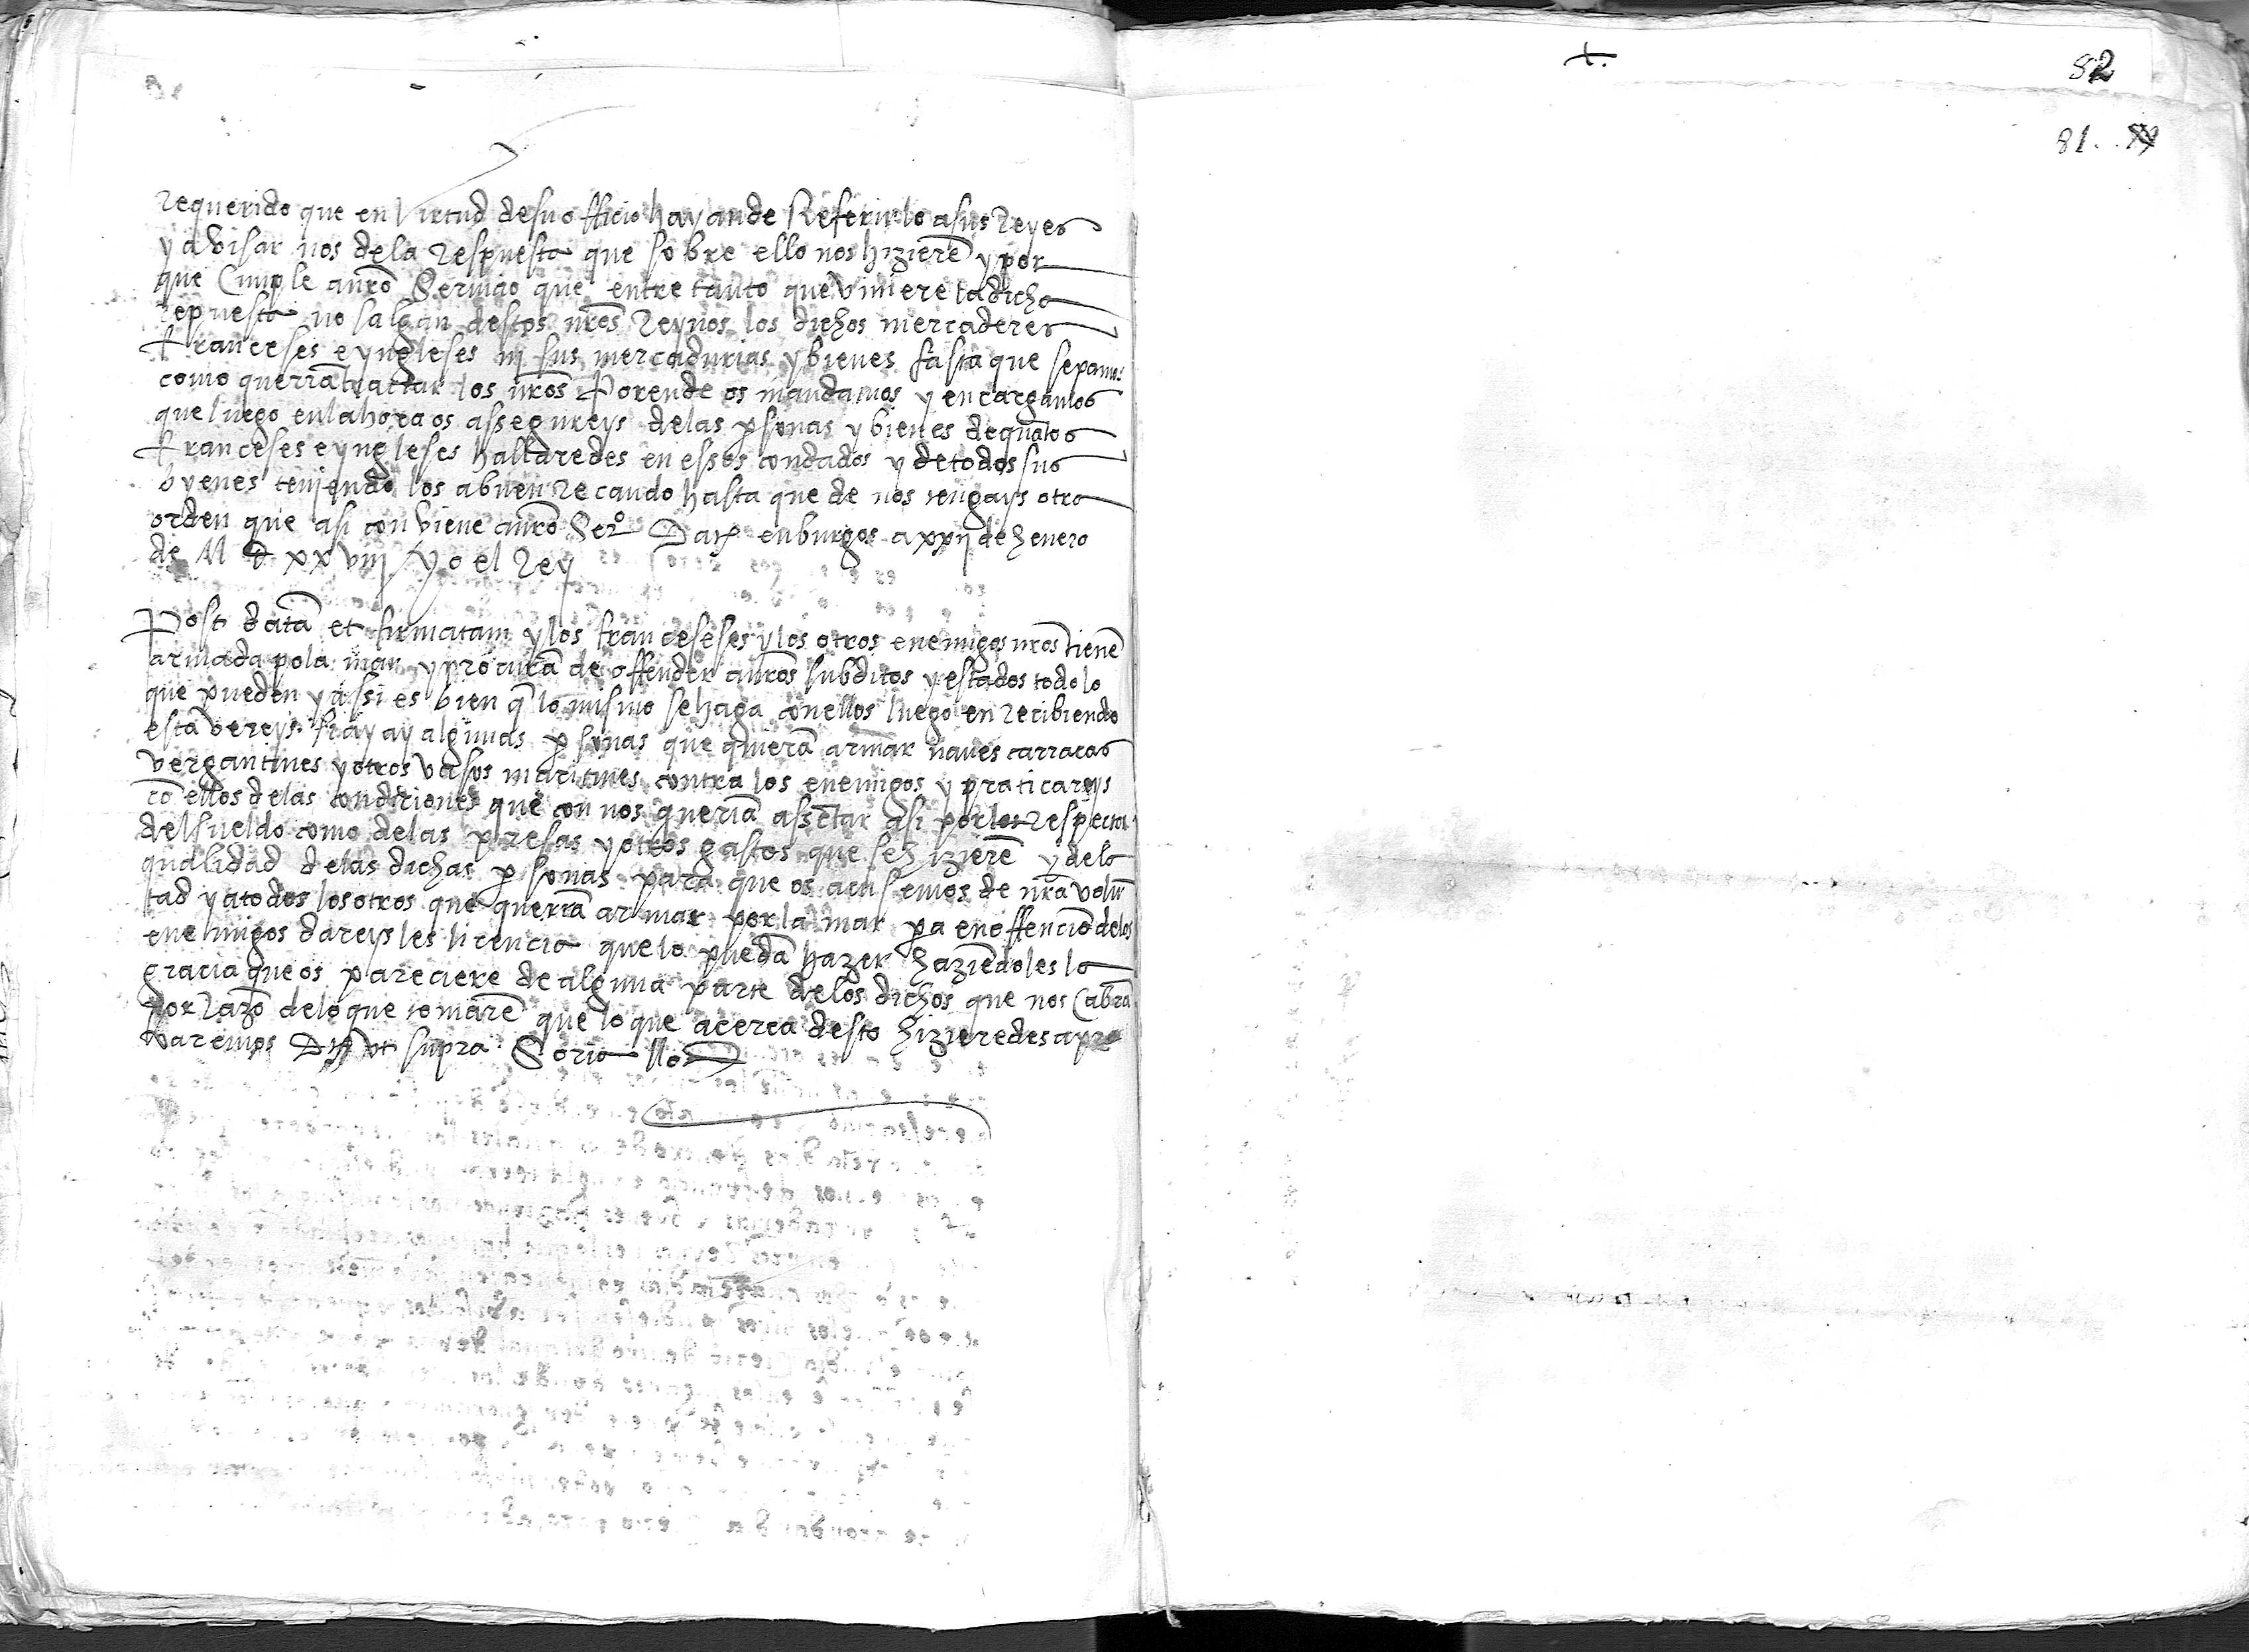 requerido que en virtud de su officio hayan de Referirlo a sus Reyes
y avisar nos dela Respuesta que sobre ello nos hizierē y por
que Cumple a nr̄o Servicio que entre tanto que viniere la dicha
repuesta no salgan destos nr̄os Reynos los dichos mercaderes
franceses e yngleses nj sus mercadurias y bienes fasta que sepamos
como querrā tractar los nr̄os Porende os mandamos y encargamos
que luego en la hora os assegureys delas p̱sonas y bienes de quātos
franceses e yngleses hallaredes en essos condados y de todos sus
byenes teniendo los a buen Recaudo hasta que de nos tengays otra
orden que asi conviene a nr̄o Serº Dat̄ en burgos a xxij de henero
de M D xxviij Yo el Rey
Post datā et firmatam y los franceseses y los otros enemigos nr̄os tienē
armada pola mar y procurā de offender a nr̄os subditos y estados todo lo
que pueden y assi es bien q̄ lo mismo se haga con ellos luego en recibiendo
esta vereys si ay algunas p̱sonas que quierā armar naves carracas
vergantines y otros vasos maritimes contra los enemigos y praticareys
cō ellos delas condiciones que con nos querrā assētar asi por los respectos
del sueldo como delas presas y otros gastos que se hizierē y dela
qualidad delas dichas p̱sonas para que os avisemos de nr̄a volū
tad y a todos los otros que querrā armar por la mar p̱a en offenciō delos
enemigos dareys les licencia que lo puedā hazer haziēdoles la
gracia que os pareciere de alguna parte delos dichos que nos Cabrā
por Razō delo que tomarē que lo que acerca desto hizieredes apro
varemos Dat̄ ut supra Soria
+.
82
81..